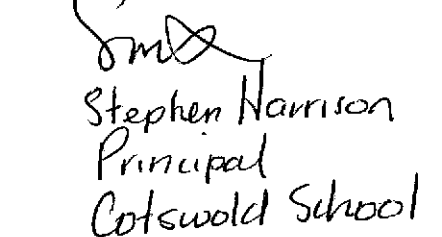 Stephen Harrison
Principal
Cotswold School